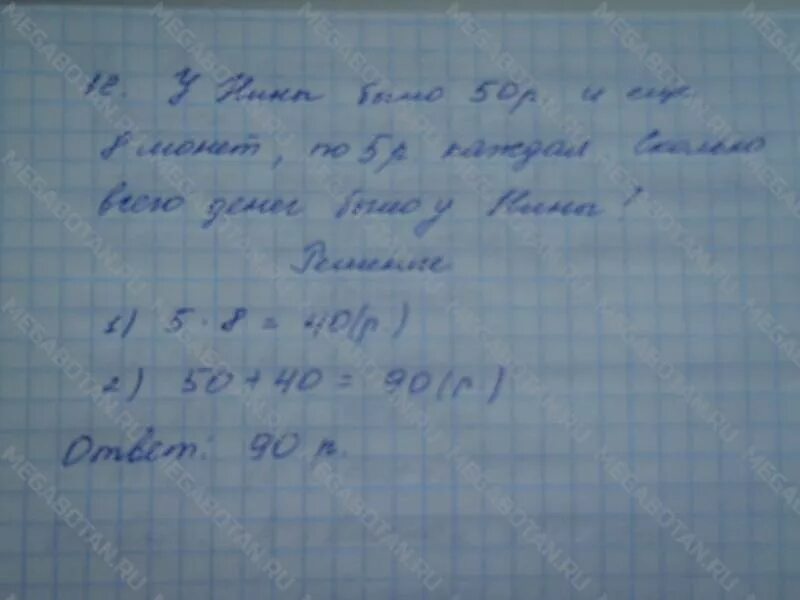 12. У Нины было 50р. и еще
8 монет, по 5 р каждая Сколько
всего денег было у Нины?
Решение
1) 5 · 8 = 40(р)
2) 50 + 40 = 90(р)
Ответ: 90 р.
MEGABOTAN.RU